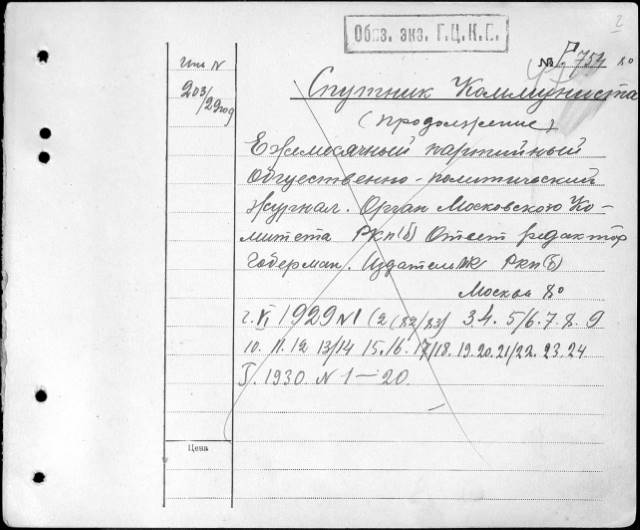 2
Обяз. экз. Г.Ц.К.П.
№ 754 80
Инв N
203/29год
Спутник Коммуниста
(продолжение)
Ежемесячный партийный
общественно-политический
журнал. Орган Московского Ко-
митета РКП(б) Ответ редактор
Гоберман. Издатель МК РКП(б)
Москва 8о
г. VI 1929 N 1 (2 (82/83) 3.4. 5/6. 7. 8. 9
10. 11. 12 13/14 15. 16. 17/18. 19. 20. 21/22. 23. 24
1930. N 1—20.
Цена